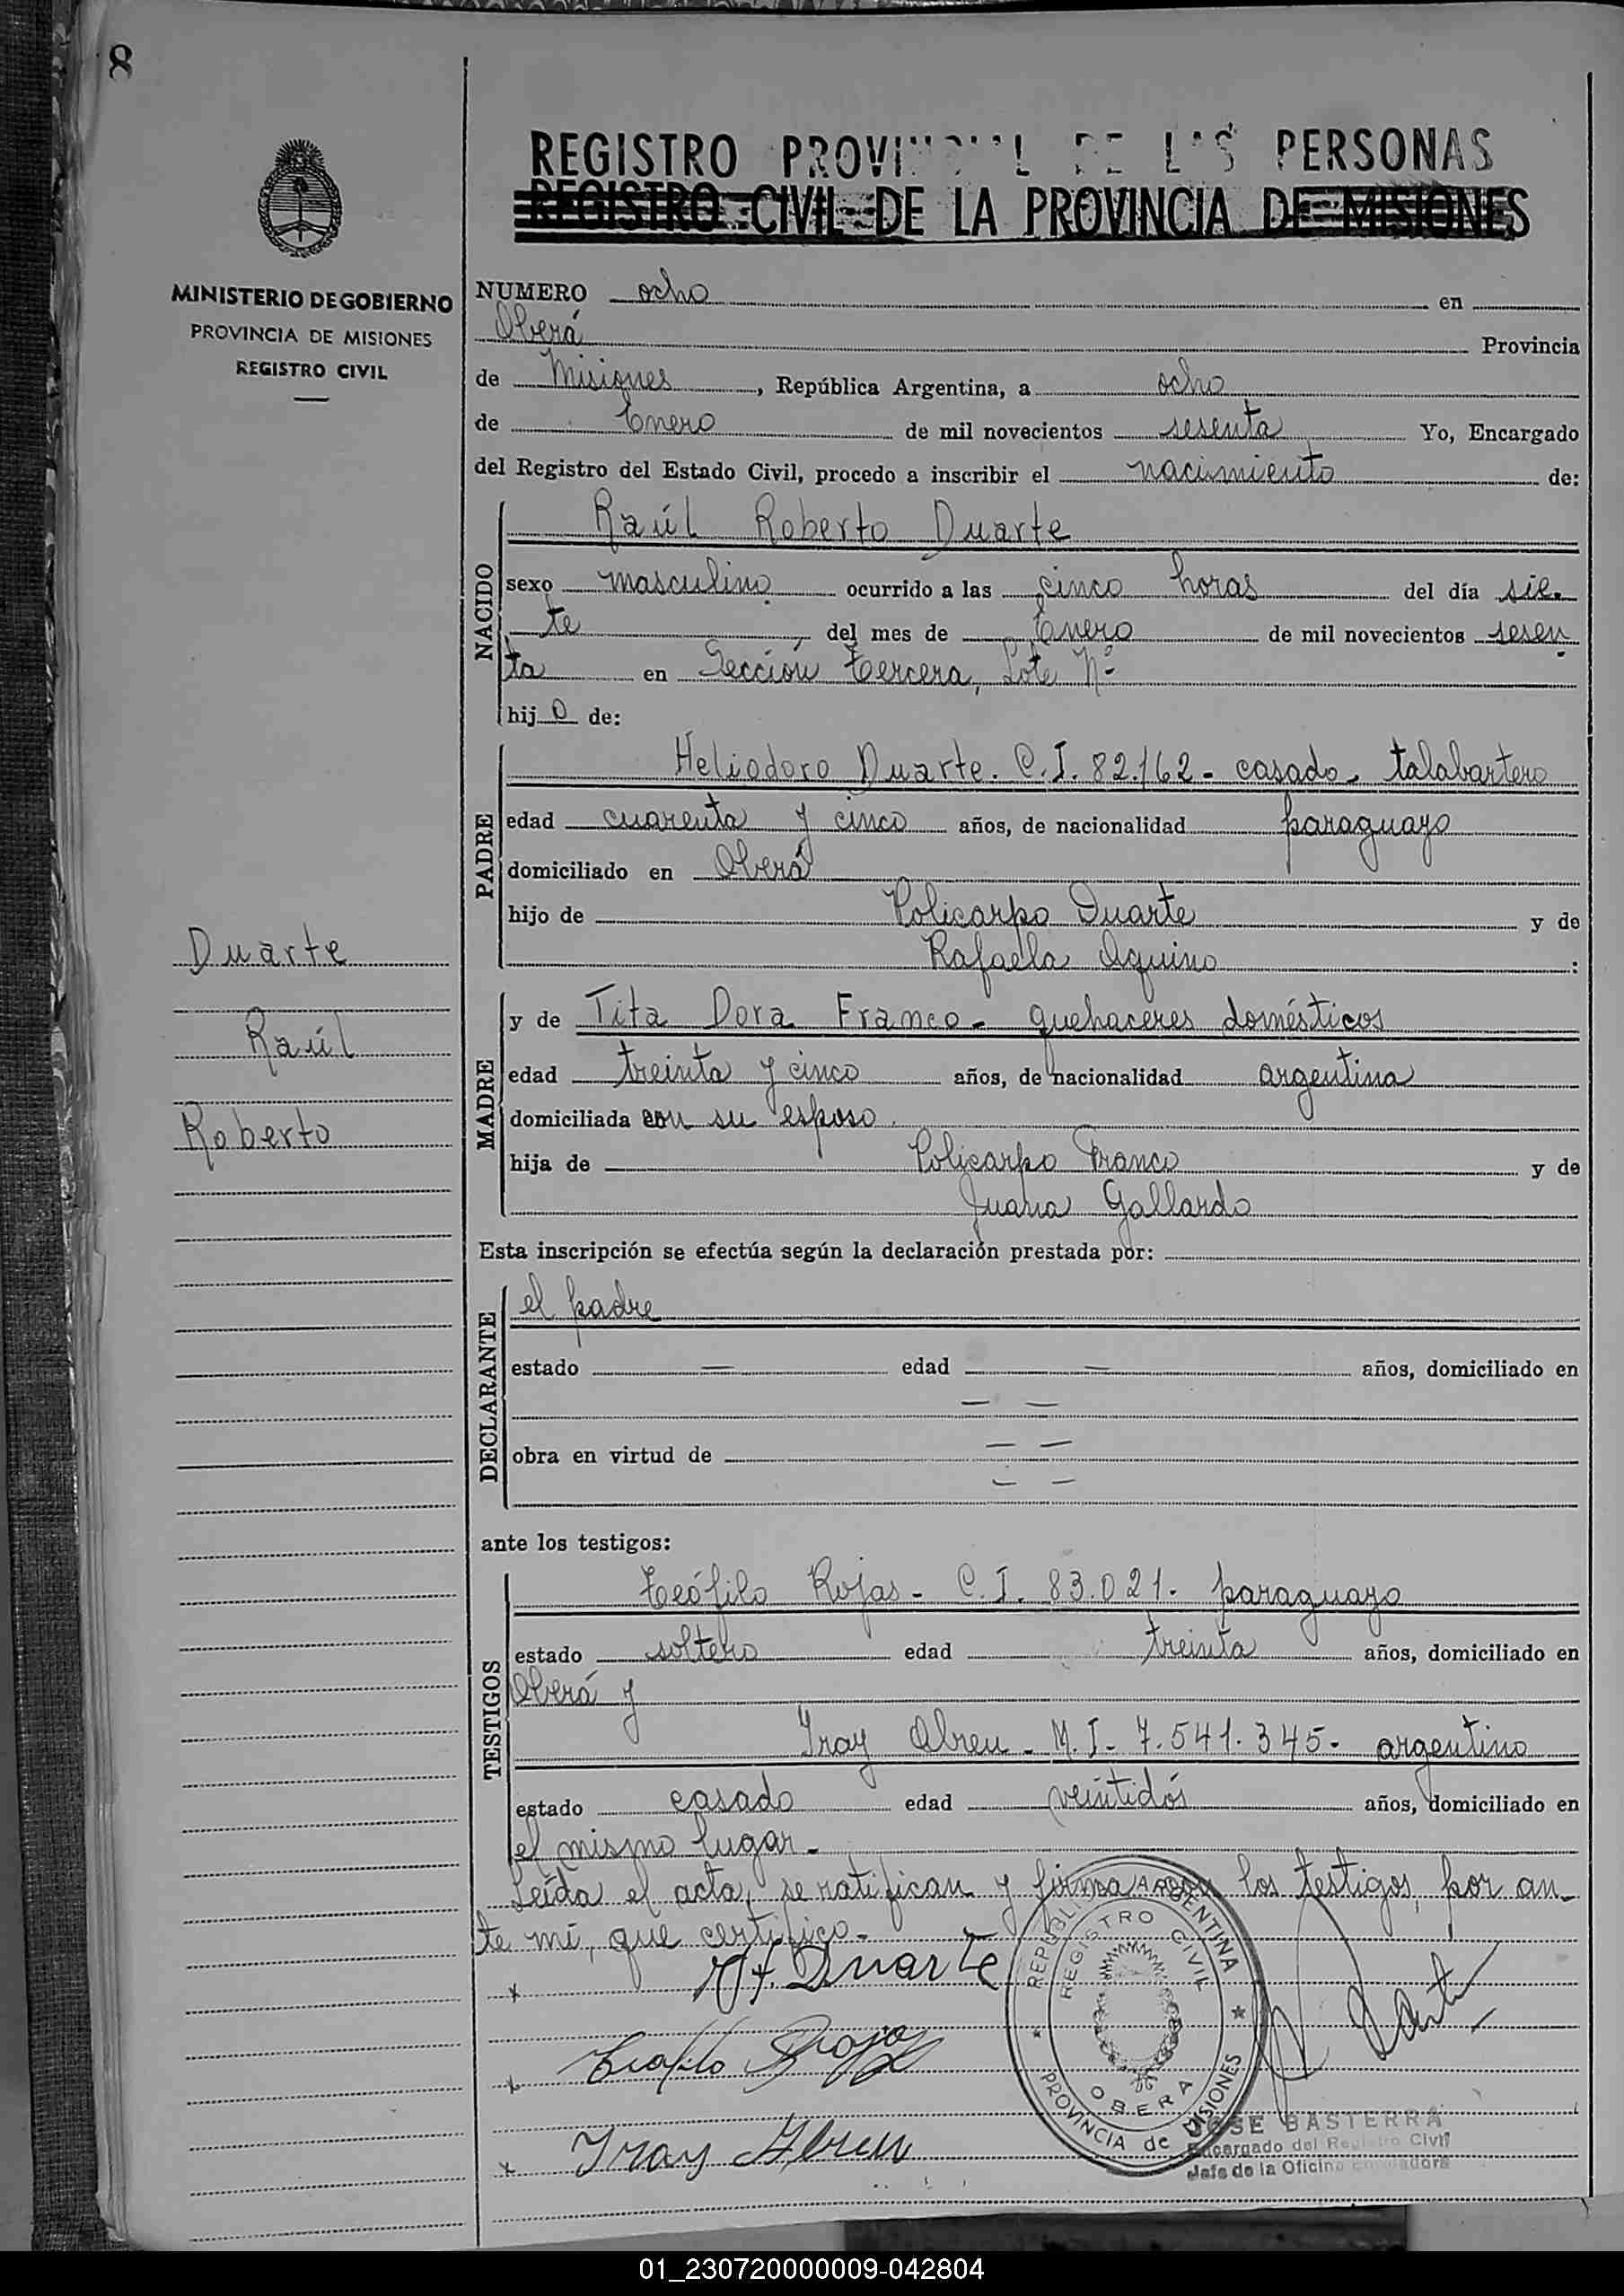 8
REGISTRO PROVINCIAL DE LAS PERSONAS
REGISTRO CIVIL DE LA PROVINCIA DE MISIONES
MINISTERIO DE GOBIERNO
PROVINCIA DE MISIONES
REGISTRO CIVIL
NUMERO ocho en
Oberá Provincia
de Misiones, República Argentina, a ocho
de Enero de mil novecientos sesenta Yo, Encargado
del Registro del Estado Civil, procedo a inscribir el nacimiento de:
NACIDO
Raúl Roberto Duarte
sexo masculino ocurrido a las cinco horas del día sie-
te, del mes de Enero de mil novecientos sesen
ta en Sección tercera, Lote Nº
hijo de:
PADRE
Heliodoro Duarte. C.I. 82.162- casado- talabartero
edad cuarenta y cinco años, de nacionalidad paraguayo
domiciliado en Oberá
hijo de Policarpo Duarte y de
Rafaela Aquino :
Duarte
Raúl
Roberto
MADRE
y de Tita Dora Franco- quehaceres domésticos
edad treinta y cinco años, de nacionalidad argentina
domiciliada con su esposo.
hija de Policarpo Franco y de
Juana Gallardo
Esta inscripción se efectúa según la declaración prestada por:
DECLARANTE
el padre
estado — edad — años, domiciliado en
— —
obra en virtud de — —
— —
ante los testigos:
TESTIGOS
Teófilo Rojas- C.I. 83.021- paraguayo
estado soltero edad treinta años, domiciliado en
Oberá y
Iray Abreu- M.I- 7.541.345- argentino
estado casado edad veintidós años, domiciliado en
el mismo lugar-
Leída el acta, se ratifican y firman los testigos, por an-
te mí, que certifico-
x Duarte
x Teofilo Rojas
x Iray Abreu
REPUBLICA ARGENTINA
REGISTRO CIVIL
OBERA
PROVINCIA de MISIONES
JOSE BASTERRA
Encargado del Registro Civil
Jefe de la Oficina Enroladora
01_230720000009-042804